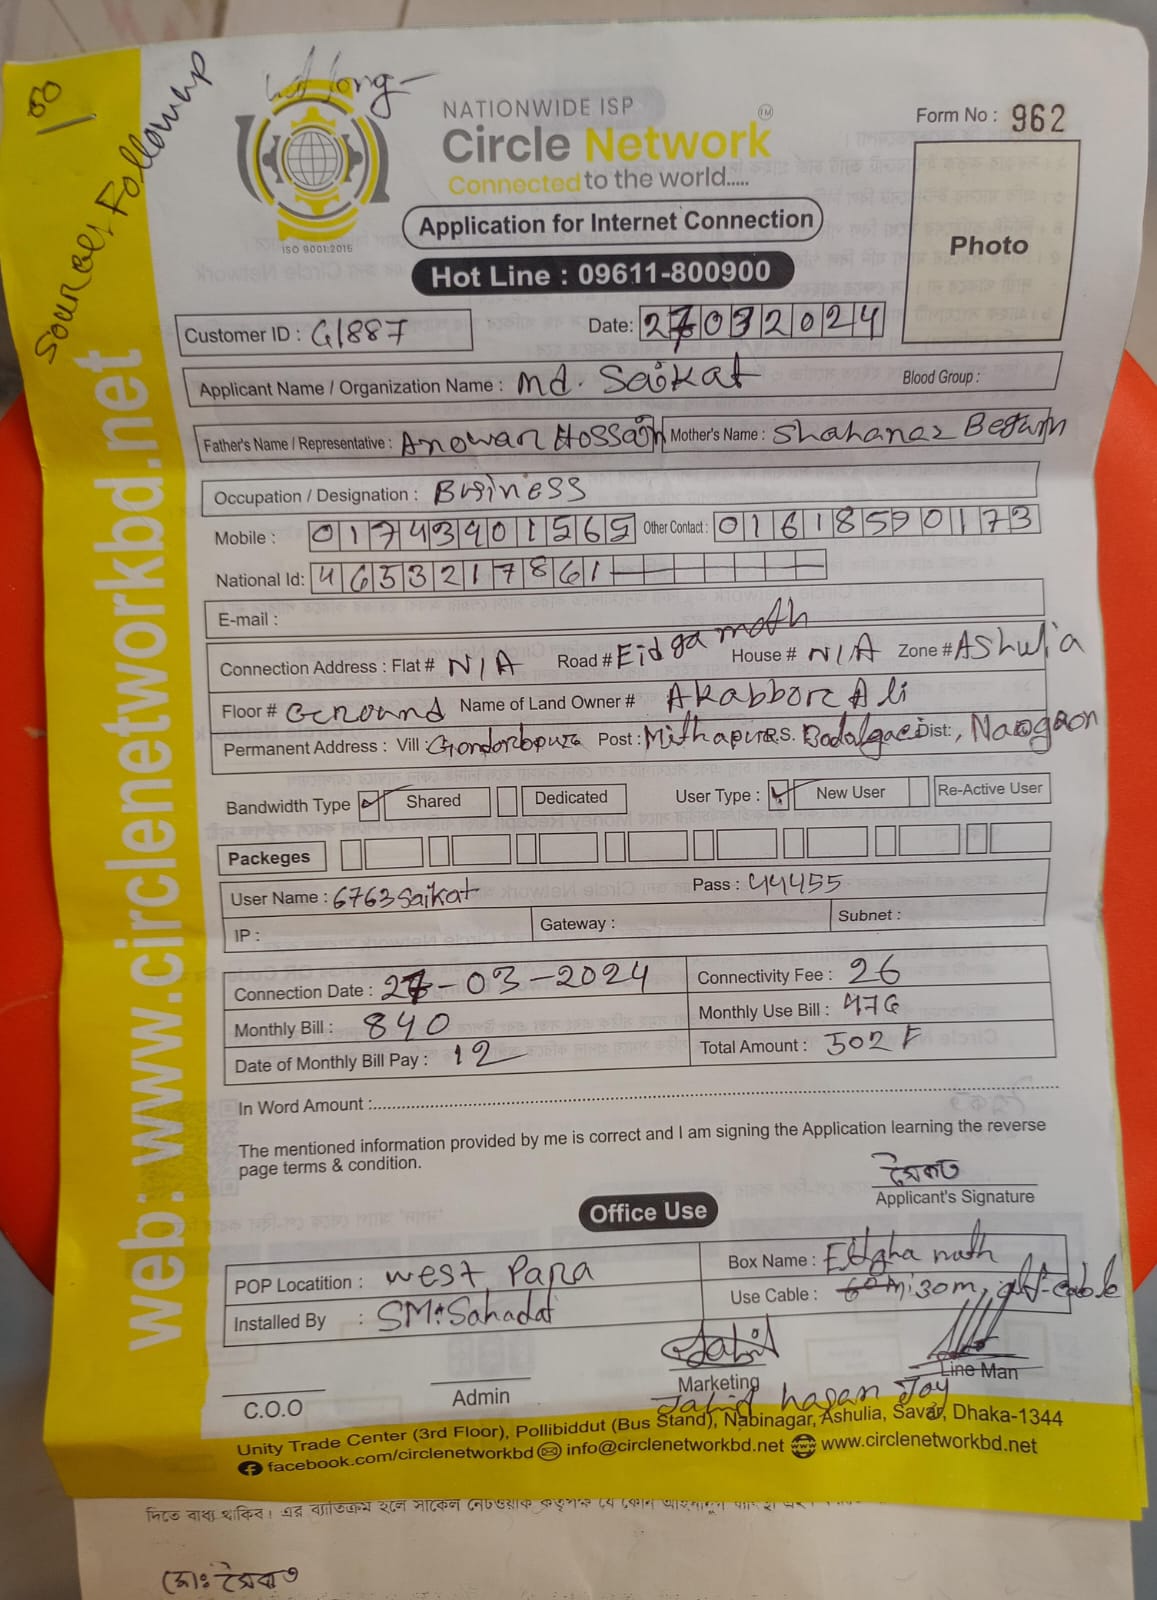 50
Sources, Followup
NATIONWIDE ISP
Circle Network TM
Connected to the world.....
ISO 9001:2015
Form No : 962
Application for Internet Connection
Photo
Hot Line : 09611-800900
Customer ID : G1887
Date: 27032024
Applicant Name / Organization Name : Md. Saikat Blood Group :
Father's Name / Representative : Anowar Hossain Mother's Name : Shahanaz Begum
Occupation / Designation : Business
Mobile : 01743901565 Other Contact : 01618590173
National Id: 4653217861
E-mail :
Connection Address : Flat # N/A Road # Eidga math House # N/A Zone # Ashulia
Floor # Ground Name of Land Owner # Akabbor Ali
Permanent Address : Vill : Gondorbpura Post : Mithapur P.S. Badalgaci Dist: , Naogaon
Bandwidth Type Shared Dedicated User Type : New User Re-Active User
Packeges
User Name : 6763saikat Pass : 44455
IP : Gateway : Subnet :
Connection Date : 27-03-2024 Connectivity Fee : 26
Monthly Bill : 840 Monthly Use Bill : 476
Date of Monthly Bill Pay : 12 Total Amount : 502
In Word Amount :
The mentioned information provided by me is correct and I am signing the Application learning the reverse
page terms & condition.
সৈকত
Applicant's Signature
Office Use
POP Locatition : West Para Box Name : Eidgha math
Installed By : SM: Sahadat Use Cable : 60m 30m,
C.O.O Admin Marketing Line Man
Jahid hasan Joy
Unity Trade Center (3rd Floor), Pollibiddut (Bus Stand), Nabinagar, Ashulia, Savar, Dhaka-1344
facebook.com/circlenetworkbd info@circlenetworkbd.net www.circlenetworkbd.net
web: www.circlenetworkbd.net
দিতে বাধ্য থাকিব। এর ব্যতিক্রম হলে সার্কেল নেটওয়ার্ক কতৃপক্ষ যে কোন
মোঃ সৈকত